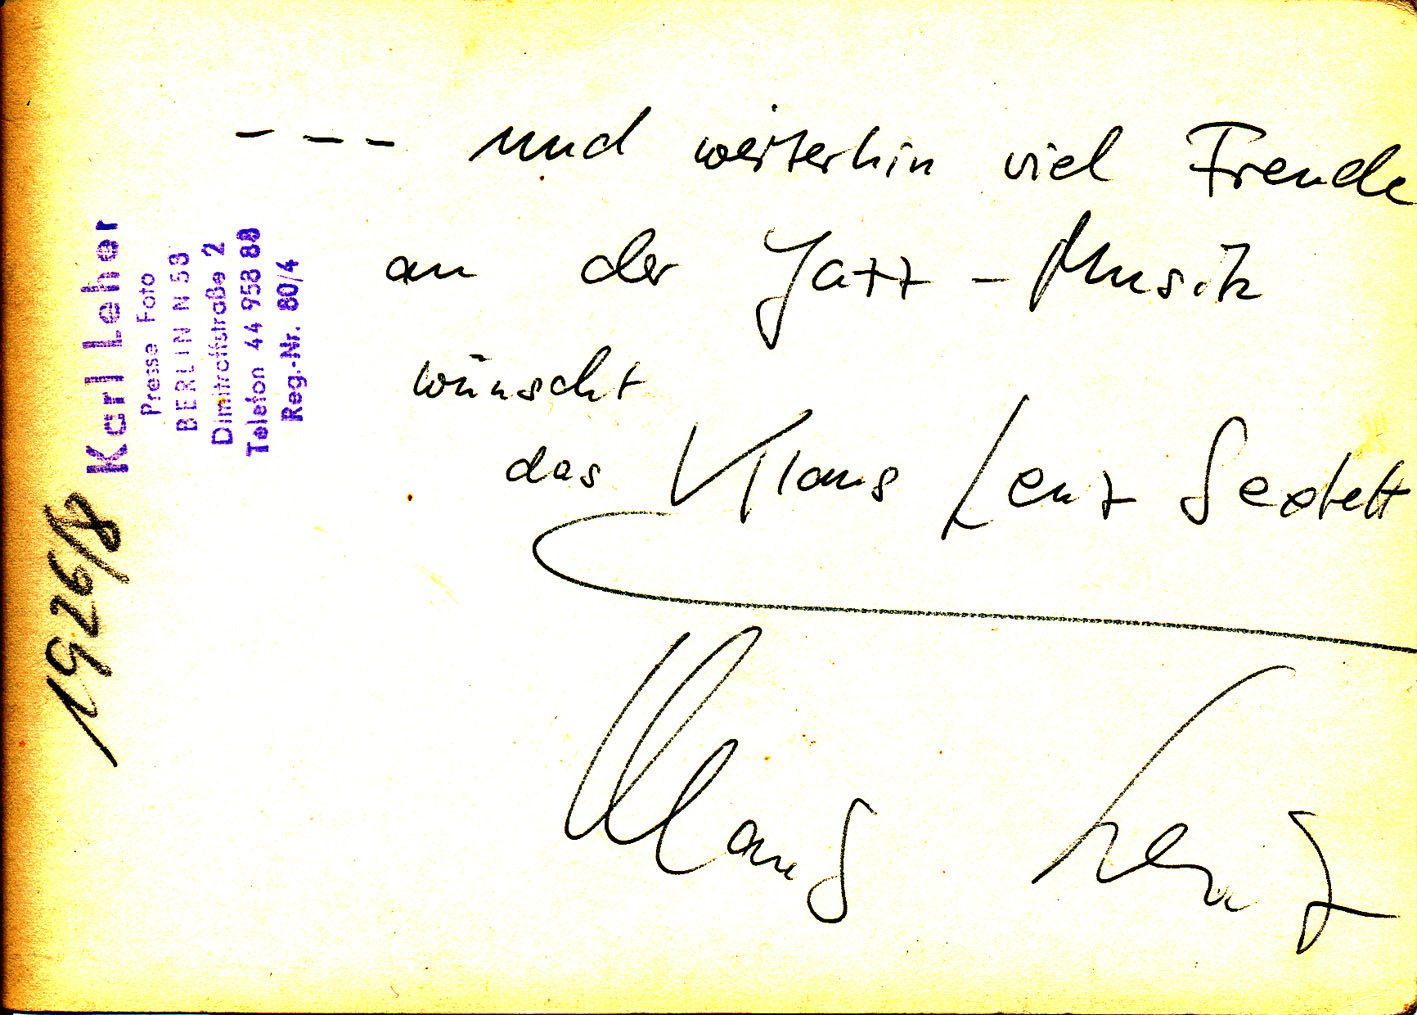 --- und weiterhin viel Freude
an der Jazz-Musik
wünscht
das Klaus Lenz Sextett
Klaus Lenz
Karl Leher
Presse Foto
BERLIN N 58
Dimitroffstraße 2
Telefon 44 958 88
Reg.-Nr. 80/4
1926/8